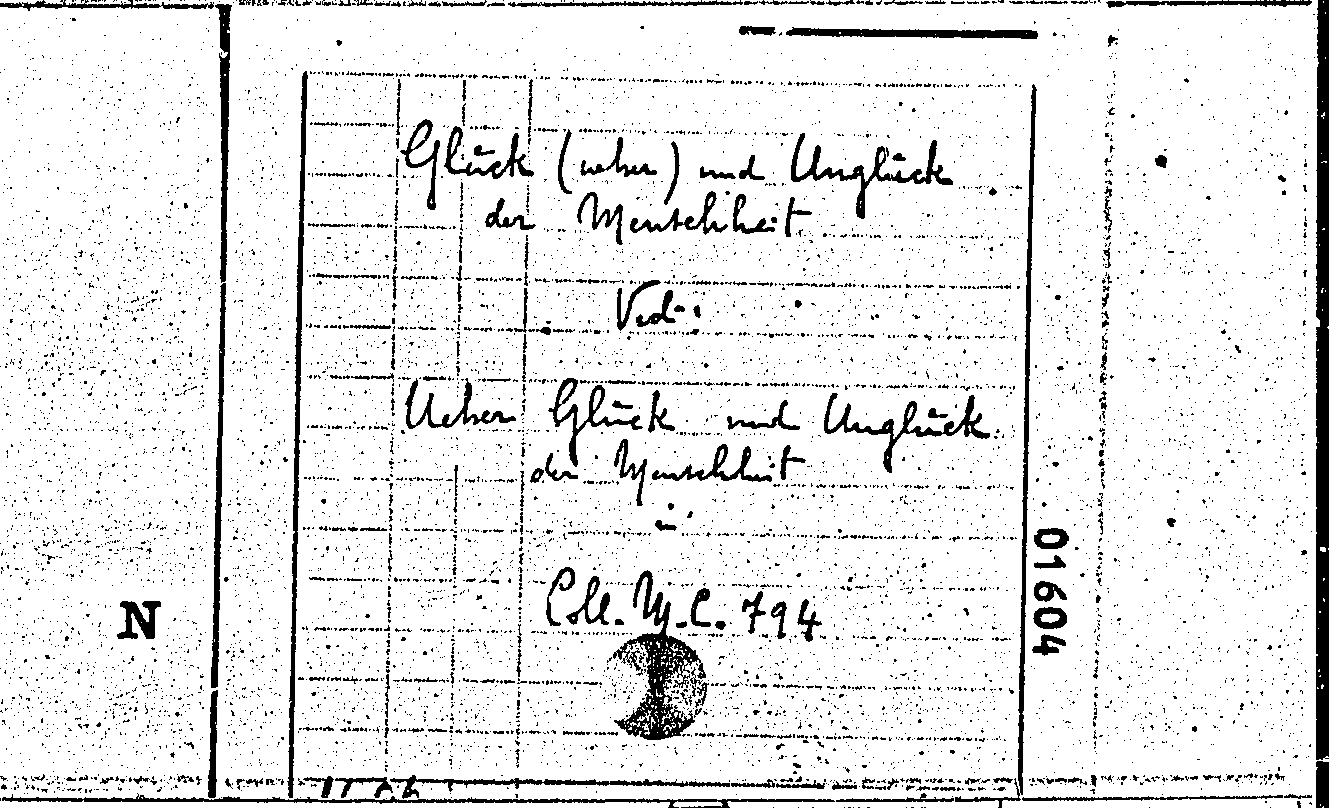 Glück (ueber) und Unglück
der Menschheit
Vid.:
Ueber Glück und Unglück
der Menschheit
in
Coll. M.C. 794
01604
N